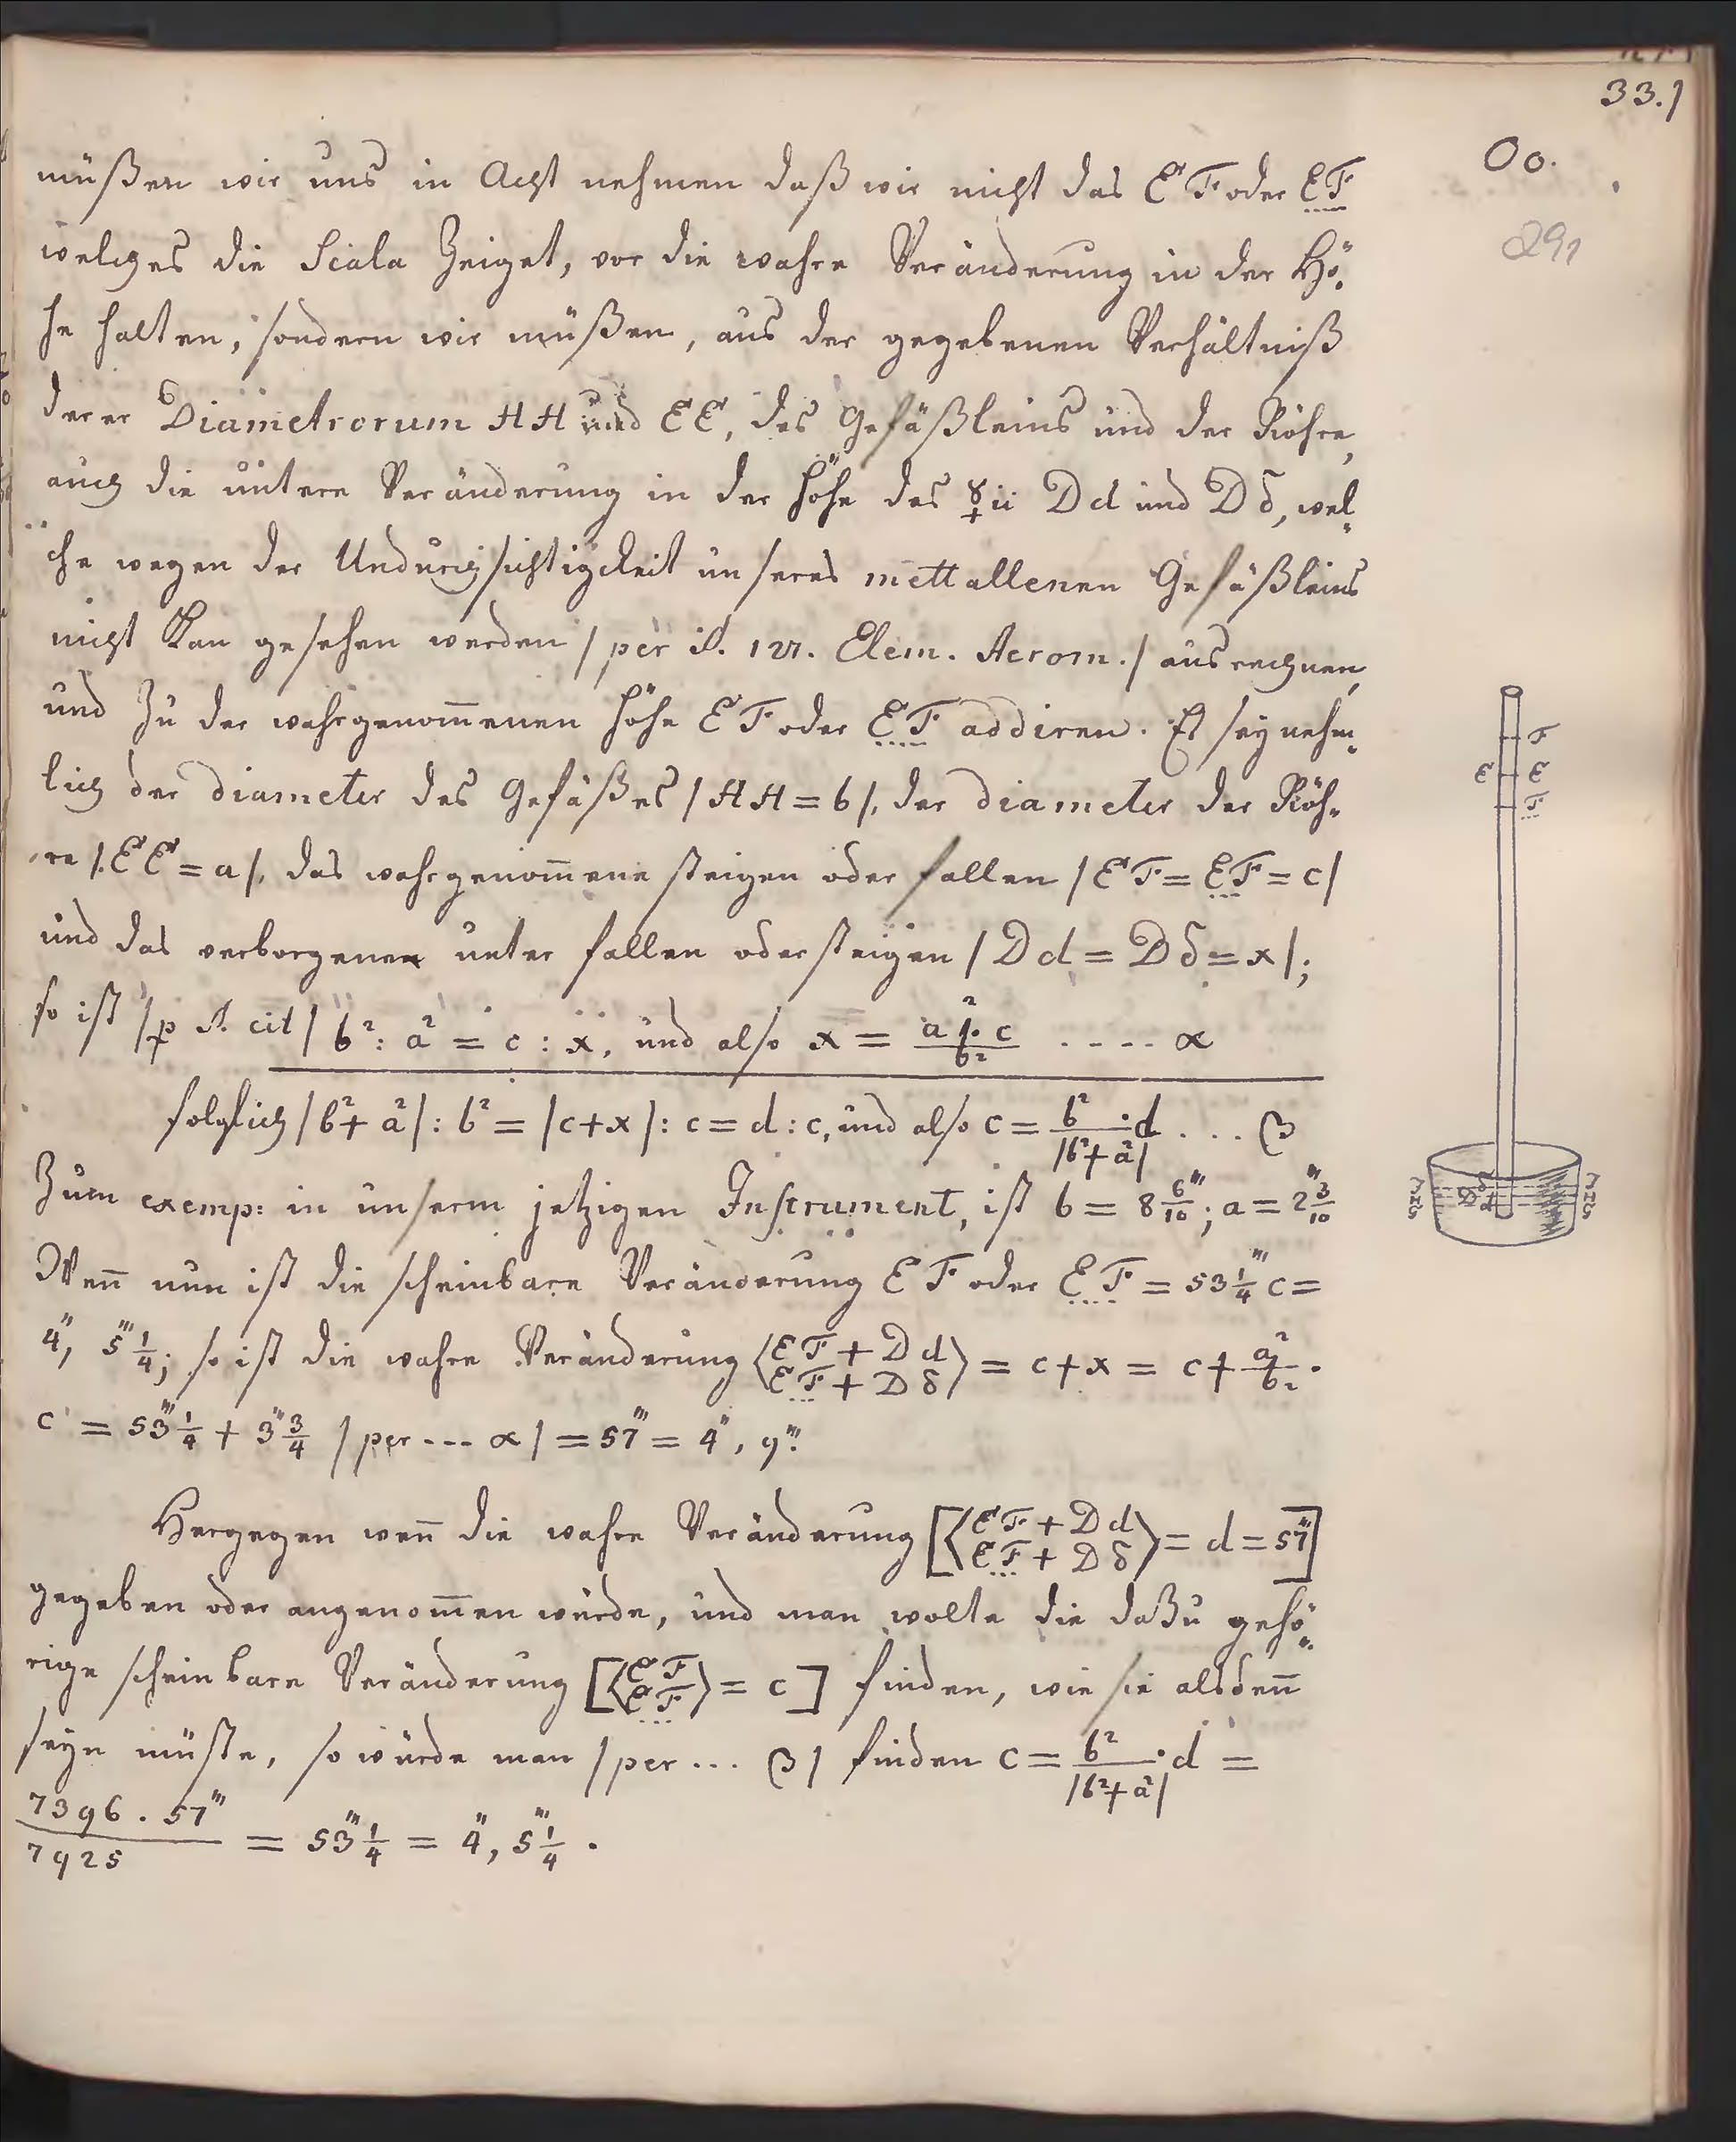 33.)
Oo.
291
müßen wir uns in Acht nehmen daß wir nicht das E F oder E F
welches die Scala Zeiget, vor die wahre Veränderung in der Hö-
he halten, sondern wir müßen, aus der gegebenen Verhältniß
derer Diametrorum HH und EE, des Gefäßleins und der Röhre,
auch die untere Veränderung in der Höhe des ☿ii D d und D δ, wel-
che wegen der Undurchsichtigckeit unseres mettallenen Gefäßleins
nicht Kan gesehen werden / per §. 121. Elem. Aerom./ ausrechnen,
und Zu der wahrgenom̅enen Höhe E F oder E F addiren. Es sey nehm-
lich der diameter des Gefäßes /HH = b/, der diameter der Röh-
re /.EE = a/, das wahrgenom̅ene steigen oder fallen /E F = E F = c/
und das verborgene unter fallen oder steigen / D d = D δ = x/;
so ist /p §. cit/ b² : a² = c : x, und also x = a². c / b² .... α
folglich /b² + a²/ : b² = /c + x/ : c = d : c, und also c = b² / /b² + a²/ · d ... β
Zum exemp: in unserm jetzigen Instrument, ist b = 8 6/10'''; a = 2 3/10'''
Wen̅ nun ist die scheinbare Veränderung E F oder E F = 53 1/4''' c =
4'', 5''' 1/4; so ist die wahre Veränderung ⟨E F + D d / E F + D δ⟩ = c + x = c + a²/b² ·
c = 53''' 1/4 + 3''' 3/4 / per --- α / = 57''' = 4'', 9'''.
Hergegen wen̅ die wahre Veränderung [⟨E F + D d / E F + D δ⟩ = d = 57''']
gegeben oder angenom̅en würde, und man wolte die daZu gehö-
rige scheinbare Veränderung [⟨E F / E F⟩ = c] finden, wie sie alsden̅
seyn müste, so würde man / per ... β / finden c = b² / /b² + a²/ · d =
7396 . 57''' / 7925 = 53''' 1/4 = 4'', 5''' 1/4 .
F
E E
F
δ
D
d